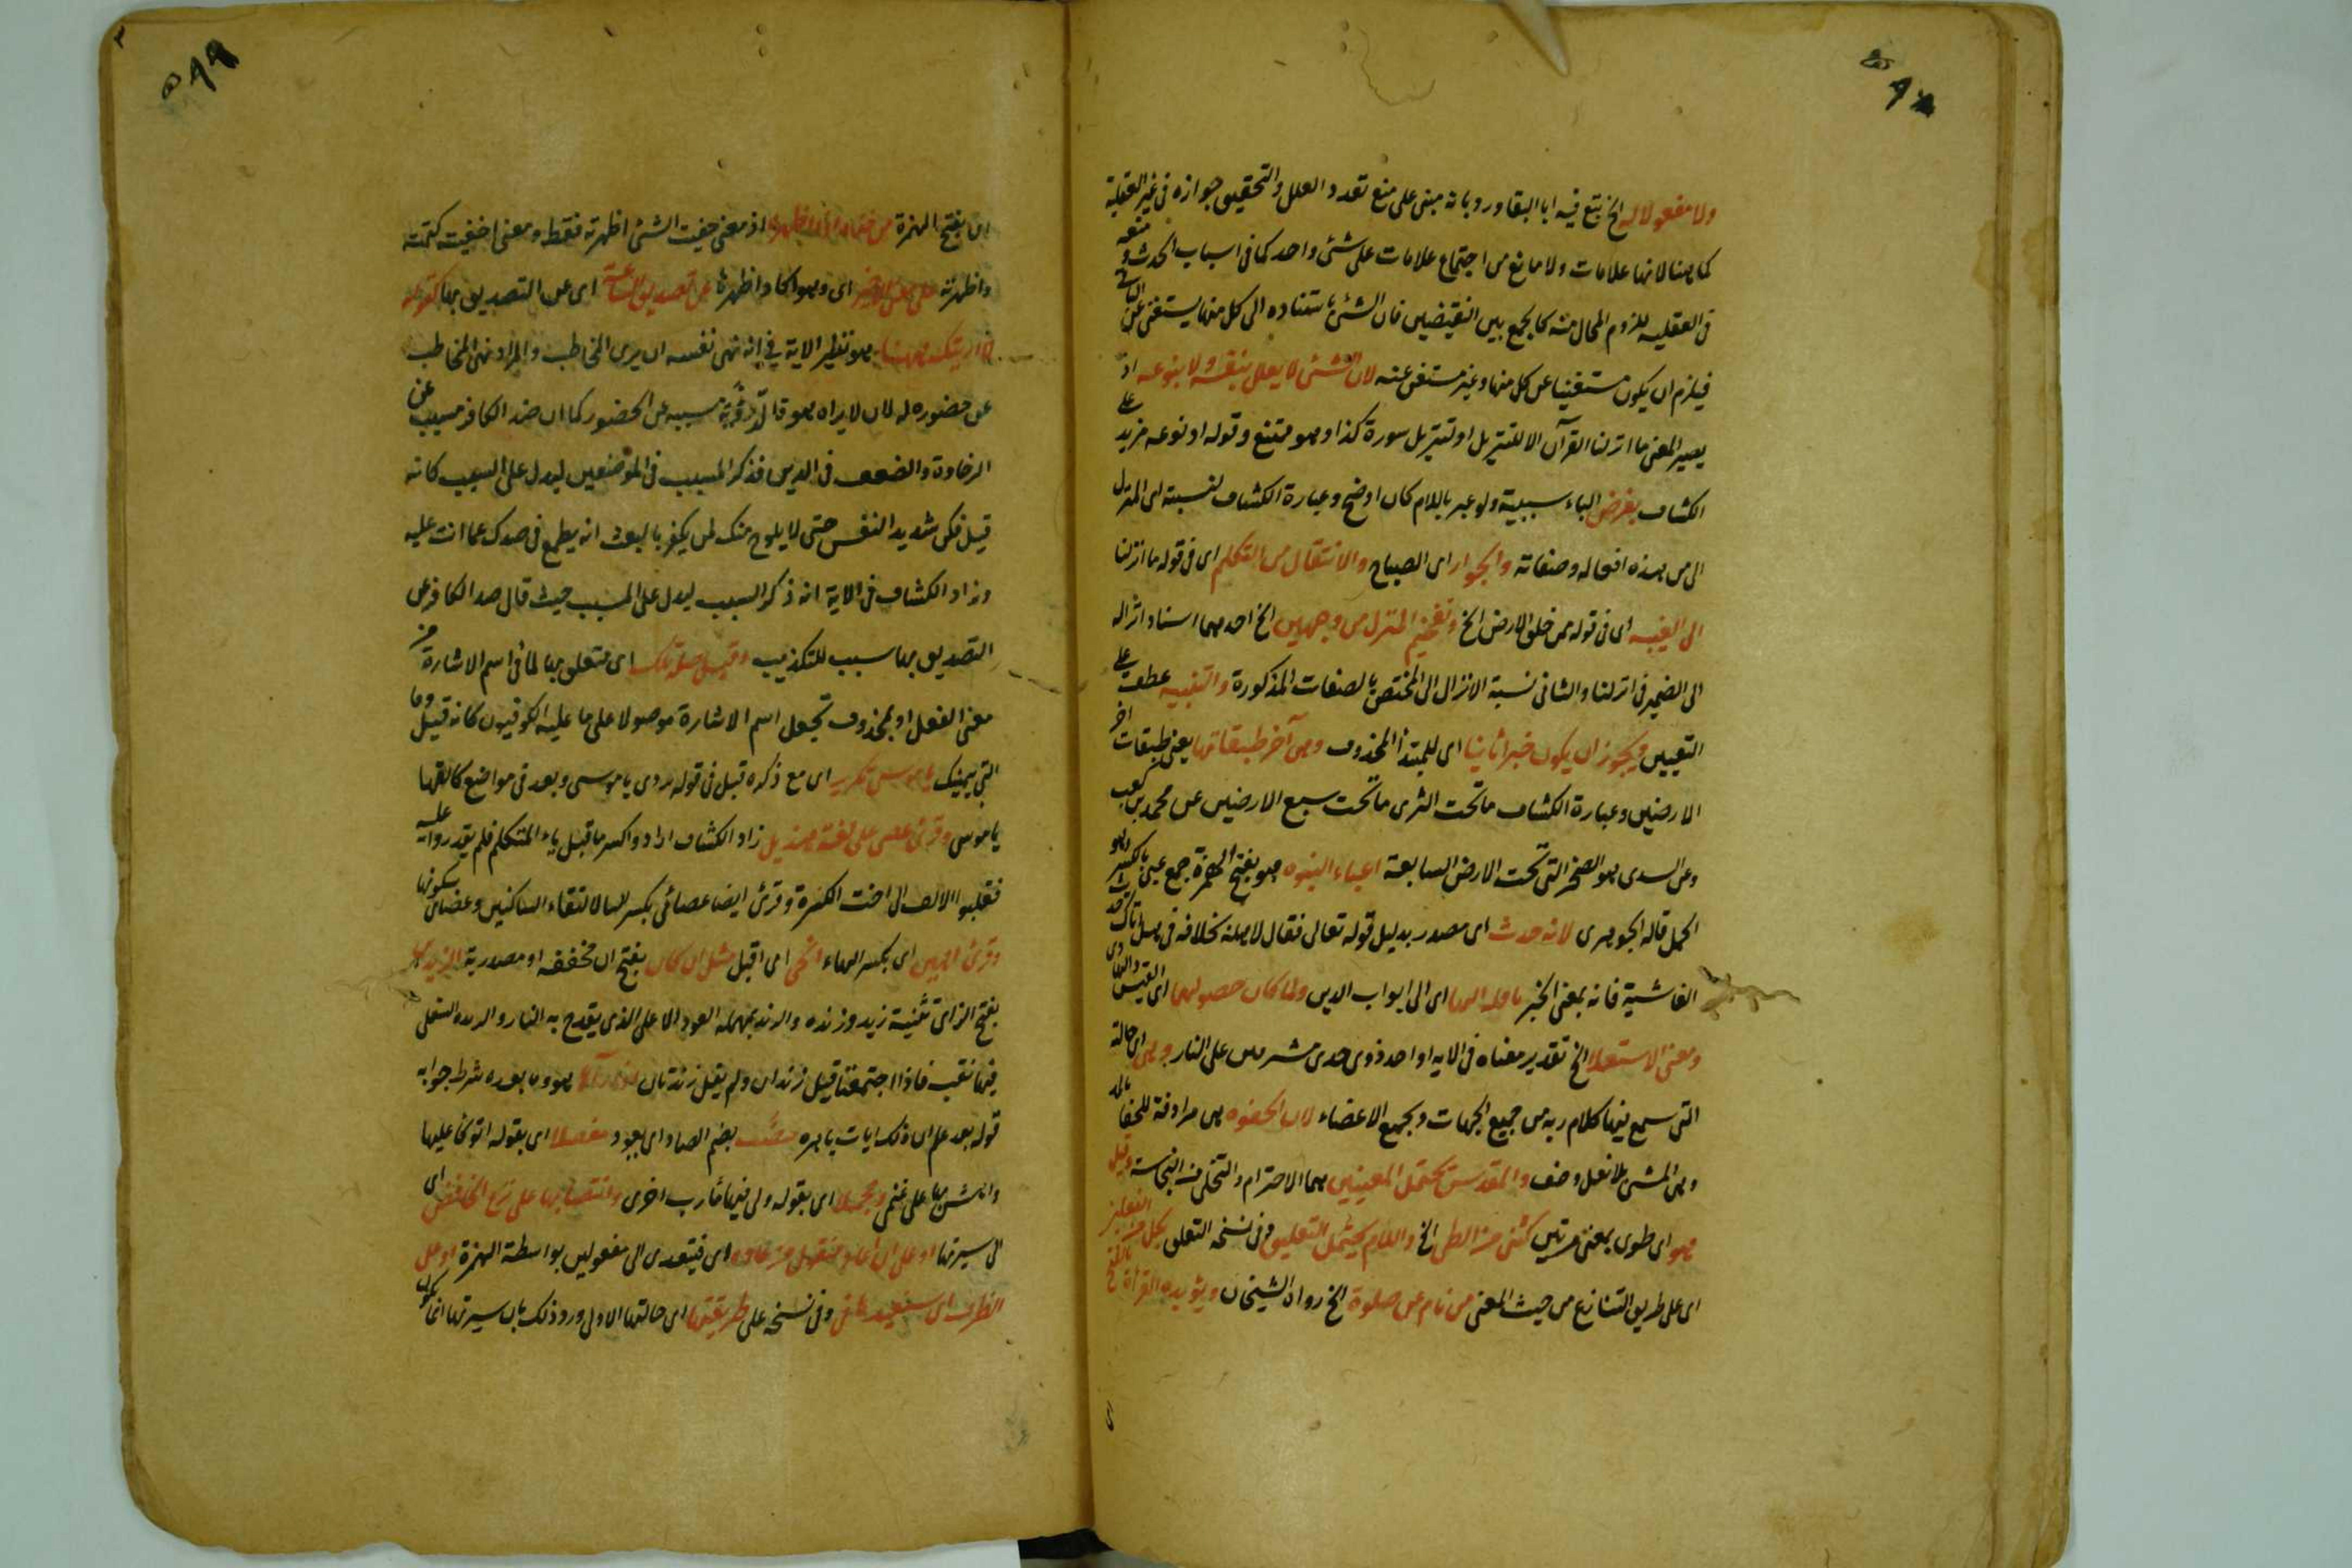 ولا مفعولا له الخ تبع فيه ابا البقا ورد بانه مبنى على منع تعدد العلل والتحقيق جوازه فى غير العقلية
كما هنا لانها علامات ولا مانع من اجتماع علامات على شئ واحد كما فى اسباب الحدث و منعه
فى العقليه للزوم المحال منه كالجمع بين النقيضين فان الشئ باستناده الى كل منها يستغنى عن الباقى
فيلزم ان يكون مستغنيا عن كل منها وغير مستغن عنه لان الشئ لا يعلل بنفسه ولا بنوعه اذ
يصير المعنى ما انزلنا القرآن الا للتنزيل او تنزيل سورة كذا وهو ممتنع وقوله او نوعه مزيد على
الكشاف بفرض الباء سببية ولو عبر باللام كان اوضح وعبارة الكشاف لنسبة الى المنزل
الى من هذه افعاله وصفاته والجوار اى الصياح والانتقال من التكلم اى فى قوله ما انزلنا
الى الغيبه اى فى قوله ممن خلق الارض الخ وتفخيم المنزل من وجهين الخ احدهما اسناد انزاله
الى الضمير فى انزلنا والثانى نسبة الانزال الى المختص بالصفات المذكورة والتنبيه عطف على
التعيين ويجوز ان يكون خبرا ثانيا اى للمبتدأ المحذوف وهى آخر طبقاتها يعنى طبقات اخر
الارضين وعبارة الكشاف ما تحت الثرى ما تحت سبع الارضين عن محمد بن كعب
وعن السدى هو الصخر التى تحت الارض السابعة اعباء النبوه هو بفتح الهمزة جمع عبئ بالكسر وهو
الحمل قاله الجوهرى لانه حدث اى مصدر بدليل قوله تعالى فقال لاهله بخلافه فى هل اتاك حديث
الغاشية فانه بمعنى الخبر اى الى ابواب الدين ولما كان حصولهما اى القبس والهدى
ومعنى الاستعلا الخ تقدير معناه فى الايه او احد ذوى هدى مشرفين على النار وهى اى حالة
التى سمع فيها كلام ربه من جميع الجهات وبجميع الاعضاء لان الحفوه هى مرادفة للحفا بالمد
وهى المشى بلا نعل وخف والمقدس يحتمل المعنيين هما الاحترام والتخلى من النجاسة وقيل
هو اى طوى بمعنى مرتين كثنى من الطى الخ واللام يحتمل التعليق وفى نسخه التعلق بكل من الفعلين
اى على طريق التنازع من حيث المعنى من نام عن صلوة الخ رواه الشيخان ويؤيده القراة بالفتح
اى بفتح الهمزة من خفاه اذا اظهره اذ معنى خفيت الشئ اظهرته فقط ومعنى اخفيت كتمته
واظهرته اى وهو اكاد اظهرها عن تصديق الساعة اى عن التصديق بها كقولهم
لا ارينك ههنا هو نظير الاية فى انه نهى نفسه ان يرى المخاطب والمراد نهى المخاطب
عن حضوره له لان لا يراه هو مسببه عن الحضور كما ان صد الكافر مسبب عن
الرخاوة والضعف فى الدين فذكر المسبب فى الموضعين ليدل على السبب كانه
قيل فكن شديد النفس حتى لا يلوح منك لمن يكفر بالبعث انه يطمع فى صدك عما انت عليه
وزاد الكشاف فى الاية انه ذكر السبب ليدل على المسبب حيث قال صد الكافر عن
التصديق بها سبب للتكذيب وقيل صلة تلك اى متعلق بها لما فى اسم الاشارة من
معنى الفعل او بمحذوف تجعل اسم الاشارة موصولا على ما عليه الكوفيون كانه قيل وما
التى بيمينك يا موسى تكرير اى مع ذكره قبل فى قوله نودى يا موسى وبعد فى مواضع كالقها
يا موسى وقرئ عصى على لغة هذيل زاد الكشاف اراد واكسر ما قبل ياء المتكلم فلم يقدروا عليه
فقلبوا الالف الى اخت الكسرة وقرئ ايضا عصائى بكسر اليا لالتقاء الساكنين وعصاى سكونها
وقرئ اهس اى بكسر الهاء انحى اى اقبل مثل ان كان بفتح ان مخففه او مصدرية الزندين
بفتح الزاى تثنية زند وزنده والزند بمهمله العود الاعلى الذى يقدح به النار والزنده السفلى
فيها ثقب فاذا اجتمعتا قيل زندان ولم يقل زندتان هو وما بعده شرط جوابه
قوله بعد علم ان ذلك ايات باهره بضم الصاد اى بعود مفصلا اى بقوله اتوكا عليها
واهش بها على غنمى ومجملا اى بقوله ولى فيها مآرب اخرى وانتصابها على نزع الخافض اى
الى سيرتها او على ان اعاد منقول من عاده اى فيتعدى الى مفعولين بواسطة الهمزة او على
الظرف اى سنعيدها فى وفى نسخه على طريقتها اى حالتها الاولى ورد ذلك بان سيرتها انما يكون